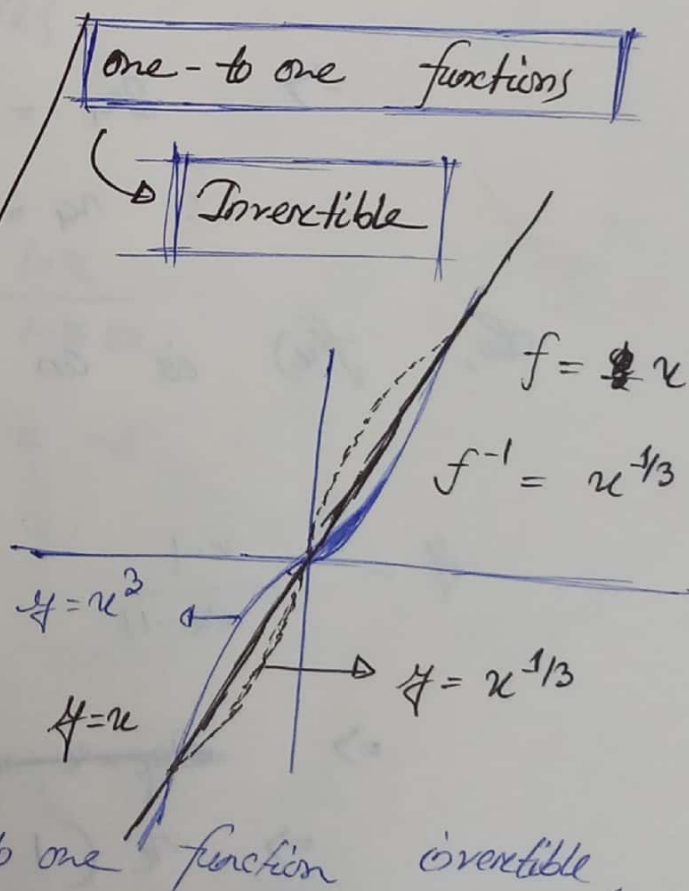 one-to one functions
Invertible
f = x
f⁻¹ = x^1/3
y = x³
y = x^1/3
y = x
one function invertible